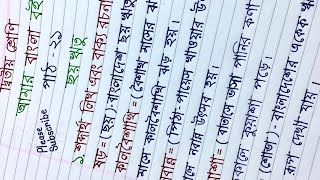 দ্বিতীয় শ্রেণি
আমার বাংলা বই
পাঠ - ২১
ছয় ঋতু
Please
Subscribe
১. শব্দার্থ লিখ এবং বাক্য রচনা
ষড় = (ছয়) বাংলাদেশ ছয় ঋতু
কালবৈশাখী = (বৈশাখ মাসের ঝড়
মাসে কালবৈশাখী ঝড় হয়।
নবান্ন = (পিঠা পায়েস খাওয়ার উ
মাসে নবান্ন উৎসব হয়।
(বাতাসে ভাসা পানির কণা
কালে কুয়াশা পড়ে।
(শোভা) - বাংলাদেশের একেক ঋ
রূপ দেখা যায়।